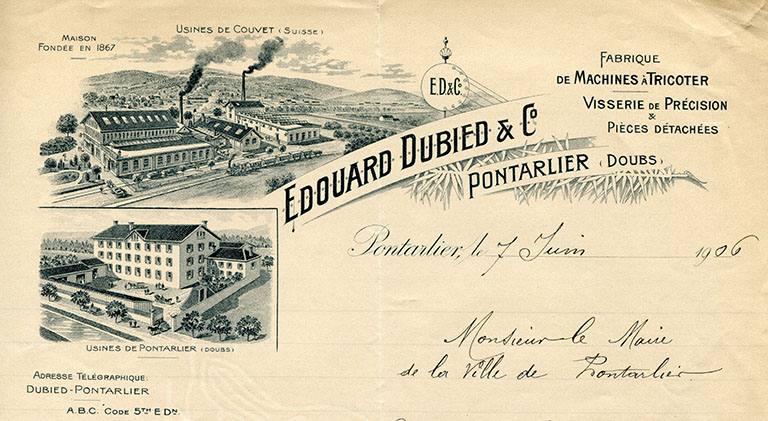 MAISON
FONDÉE EN 1867
USINES DE COUVET (SUISSE)
E.D & Cº
EDOUARD DUBIED & Cº
PONTARLIER (DOUBS)
FABRIQUE
DE MACHINES À TRICOTER
VISSERIE DE PRÉCISION
&
PIÈCES DÉTACHÉES
Pontarlier, le 7 Juin 1906
USINES DE PONTARLIER (DOUBS)
Monsieur le Maire
de la Ville de Pontarlier
ADRESSE TÉLÉGRAPHIQUE:
DUBIED-PONTARLIER
A.B.C. CODE 5TH EDN.